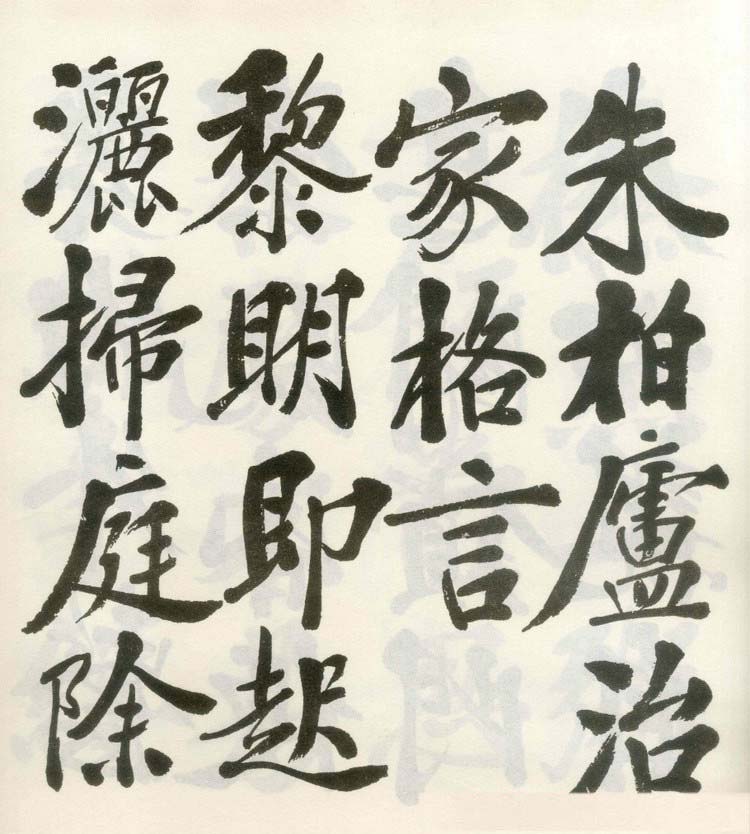 朱柏廬治
家格言
黎明即起
灑掃庭除